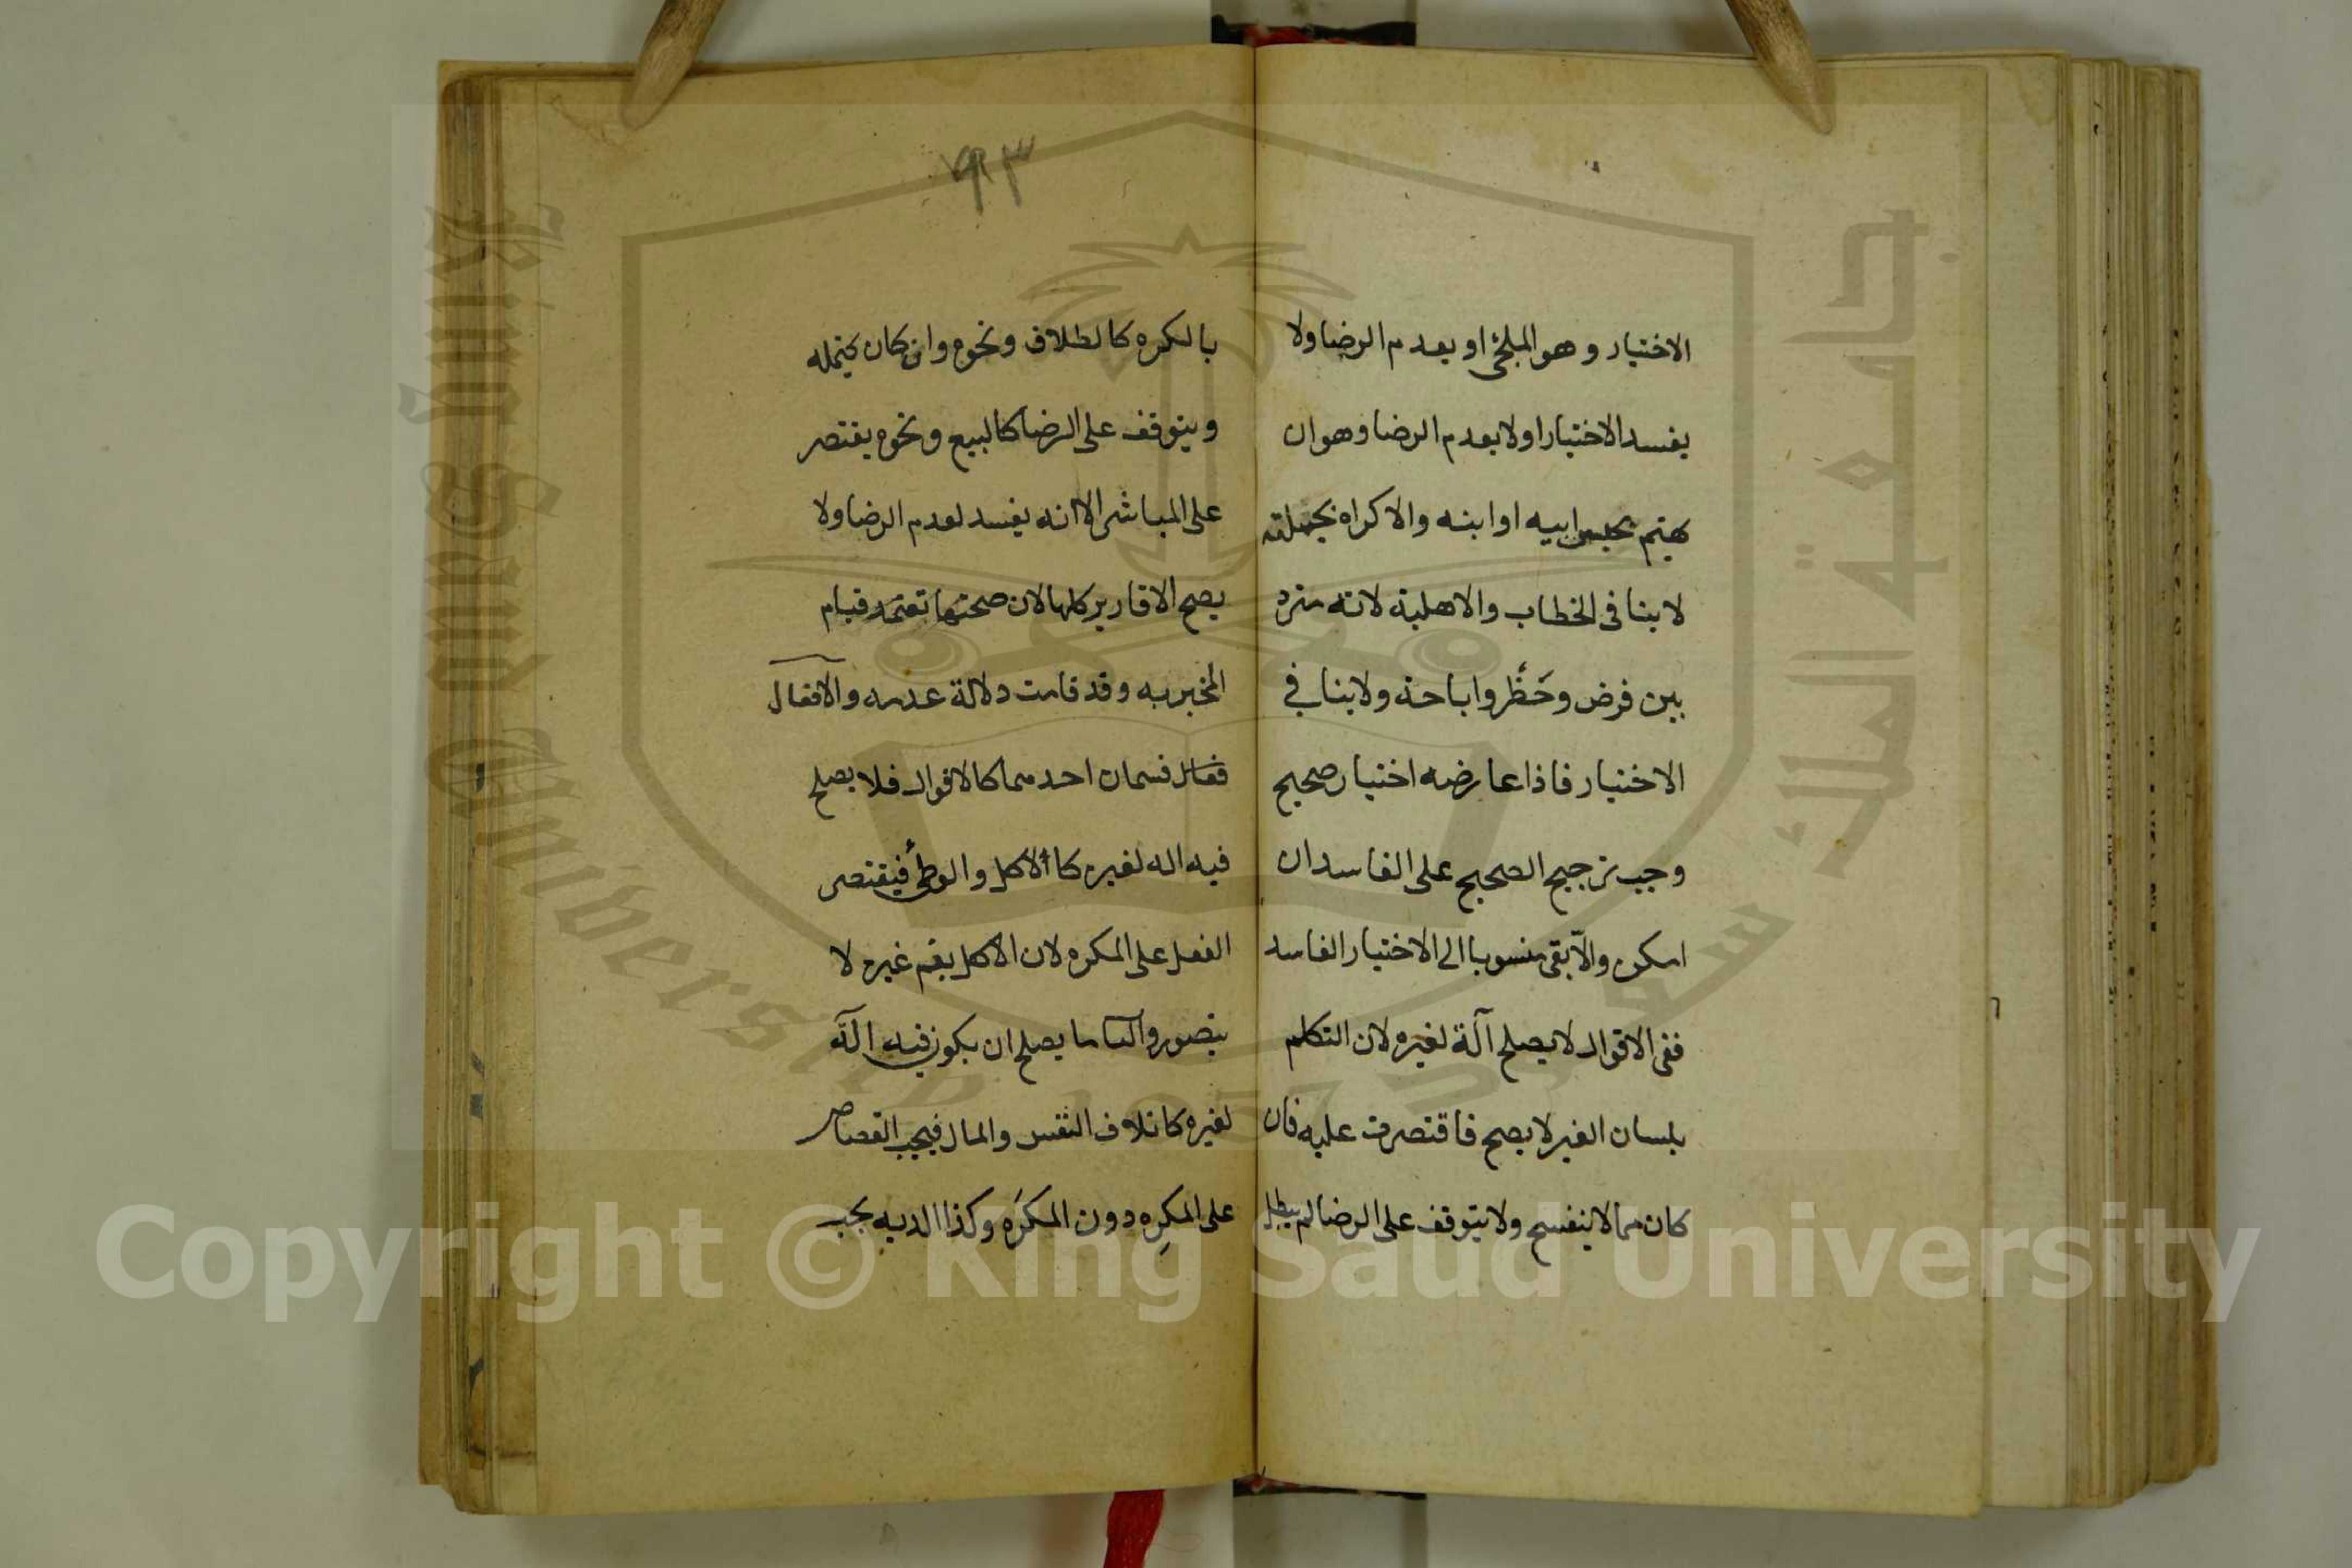 الاختيار وهو الملجئ او يعدم الرضا ولا
يفسد الاختيار او لا يعدم الرضا وهو ان
يهتم بحبس ابيه او ابنه والاكراه بجملته
لا ينافى الخطاب والاهلية لانه متردد
بين فرض وحَظْر واباحة ولا ينافي
الاختيار فاذا عارضه اختيار صحيح
وجب ترجيح الصحيح على الفاسد ان
امكن والّا بقى منسوبا الى الاختيار الفاسد
ففى الاقوال لا يصلح آلة لغيره لان التكلم
بلسان الغير لا يصح فاقتصرت عليه فان
كان مما لا ينفسخ ولا يتوقف على الرضا لم يبطل
٩٣
بالكره كالطلاق ونحوه وان كان يحتمله
ويتوقف على الرضا كالبيع ونحوه يقتصر
على المباشر الا انه يفسد لعدم الرضا ولا
يصح الاقارير كلها لان صحتها تعتمد قيام
المخبر به وقد قامت دلالة عدمه والافعال
قسمان احدهما كالاقوال فلا يصلح
فيه اله لغيره كالاكل والوطئ فيقتصر
الفعل على المكره لان الاكل بفم غيره لا
يتصور والثانى ما يصلح ان يكون فيه آلة
لغيره كاتلاف النفس والمال فيجب القصاص
على المكرِه دون المكرَه وكذا الدية يجب
جامعة الملك سعود
King Saud University 1957
Copyright © King Saud University